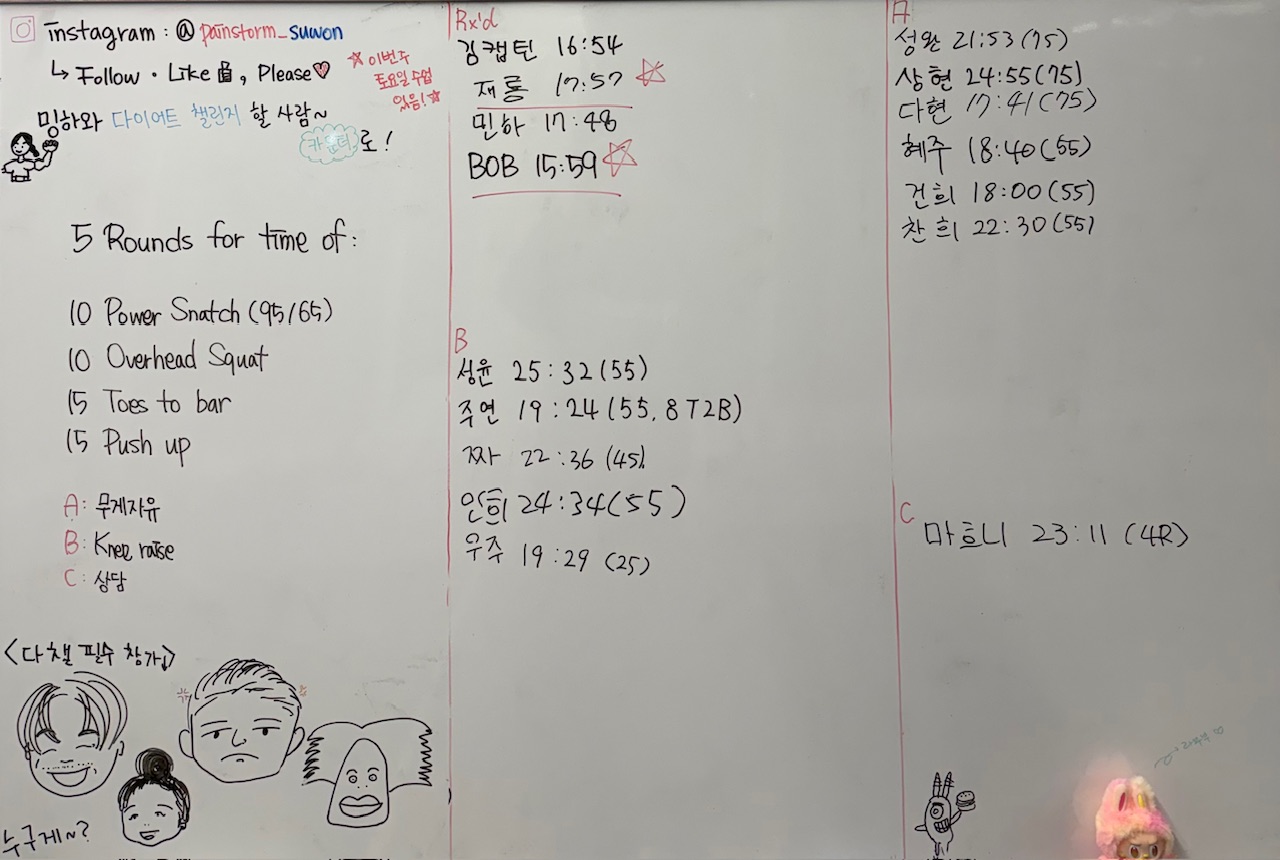 instagram : @ painstorm_suwon
↳ Follow · Like, Please♡
☆ 이번주
토요일 수업
있음! ☆
밍하와 다이어트 챌린지 할 사람~
카운터로!
5 Rounds for time of :
10 Power Snatch (95/65)
10 Overhead Squat
15 Toes to bar
15 Push up
A: 무게자유
B: Knee raise
C: 상담
<다챌 필수 참가↓>
누구게~?
Rx'd
김캡틴 16:54
재롱 17:57 ☆
민하 17:48
BOB 15:59 ☆
B
성윤 25:32 (55)
주연 19:24 (55, 8 T2B)
짜 22:36 (45)
인희 24:34 (55)
우주 19:29 (25)
A
성완 21:53 (75)
상현 24:55 (75)
다현 17:41 (75)
혜주 18:40 (55)
건희 18:00 (55)
찬희 22:30 (55)
C
마흐니 23:11 (4R)